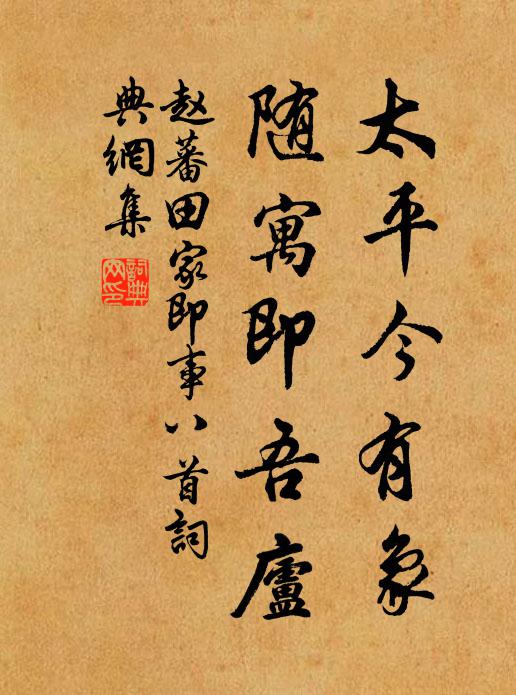 太平今有象
随寓即吾廬
赵蕃田家即事八首詞
典網集
詞典網印